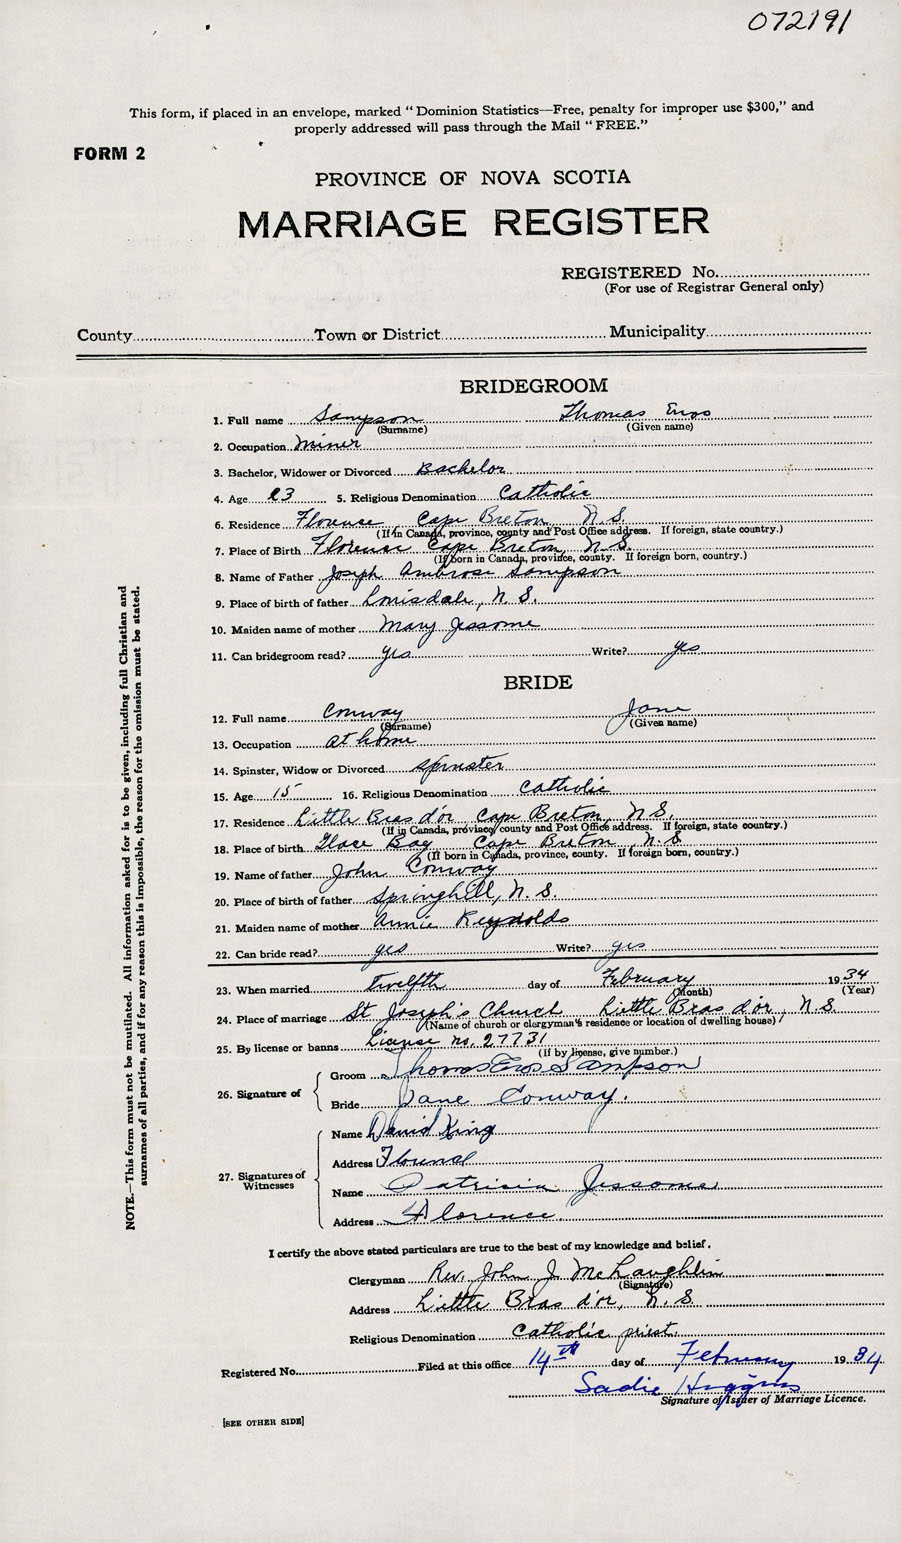 072191
This form, if placed in an envelope, marked "Dominion Statistics—Free, penalty for improper use $300," and
properly addressed will pass through the Mail "FREE."
FORM 2
PROVINCE OF NOVA SCOTIA
MARRIAGE REGISTER
REGISTERED No.
(For use of Registrar General only)
County Town or District Municipality
BRIDEGROOM
1. Full name Sampson Thomas Enos
(Surname) (Given name)
2. Occupation Miner
3. Bachelor, Widower or Divorced Bachelor
4. Age 23 5. Religious Denomination Catholic
6. Residence Florence, Cape Breton, N.S.
(If in Canada, province, county and Post Office address. If foreign, state country.)
7. Place of Birth Florence Cape Breton, N.S.
(If born in Canada, province, county. If foreign born, country.)
8. Name of Father Joseph Ambrose Sampson
9. Place of birth of father Louisdale, N.S.
10. Maiden name of mother Mary Jessome
11. Can bridegroom read? yes Write? yes
BRIDE
12. Full name Conway Jane
(Surname) (Given name)
13. Occupation at home
14. Spinster, Widow or Divorced Spinster
15. Age 15 16. Religious Denomination Catholic
17. Residence Little Bras d'or, Cape Breton, N.S.
(If in Canada, province, county and Post Office address. If foreign, state country.)
18. Place of birth Glace Bay Cape Breton, N.S.
(If born in Canada, province, county. If foreign born, country.)
19. Name of father John Conway
20. Place of birth of father Springhill, N.S.
21. Maiden name of mother Annie Reynolds
22. Can bride read? yes Write? yes
23. When married Twelfth day of February 1934
(Month) (Year)
24. Place of marriage St Joseph's Church Little Bras d'or, N.S.
(Name of church or clergyman's residence or location of dwelling house)
25. By license or banns License no. 27731
(If by license, give number.)
26. Signature of
Groom Thomas Enos Sampson
Bride Jane Conway.
27. Signatures of Witnesses
Name David King
Address Florence
Name Patricia Jessome
Address Florence.
I certify the above stated particulars are true to the best of my knowledge and belief.
Clergyman Rev. John J. McLaughlin
(Signature)
Address Little Bras d'or, N.S.
Religious Denomination Catholic priest.
Registered No. Filed at this office 14th day of February 1934
Sadie Huggins
Signature of Issuer of Marriage Licence.
[SEE OTHER SIDE]
NOTE.—This form must not be mutilated. All information asked for is to be given, including full Christian and
surnames of all parties, and if for any reason this is impossible, the reason for the omission must be stated.